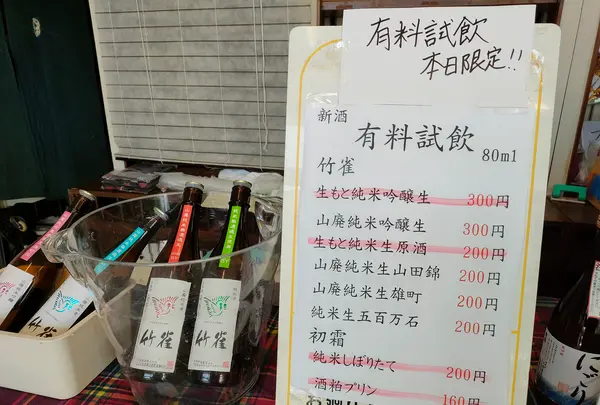 有料試飲
本日限定!!
新酒
有料試飲
80ml
竹雀
生もと純米吟醸生 300円
山廃純米吟醸生 300円
生もと純米生原酒 200円
山廃純米生山田錦 200円
山廃純米生雄町 200円
純米生五百万石 200円
初霜
純米しぼりたて 200円
酒粕プリン 160円
竹雀
竹雀
竹雀
にごり